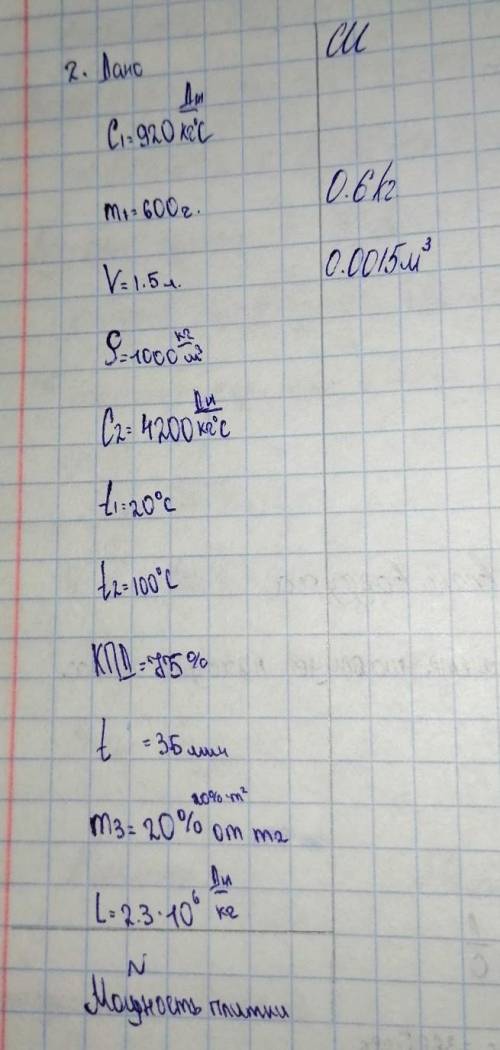 2. Дано
СИ
C₁=920 Дж/кг°C
m₁=600г.
0.6 кг
V=1.5л.
0.0015м³
ρ=1000 кг/м³
C₂=4200 Дж/кг°C
t₁=20°C
t₂=100°C
КПД=75%
t =35 мин
20%·m²
m₃=20% от m₂
L=2.3·10⁶ Дж/кг
N
Мощность плитки